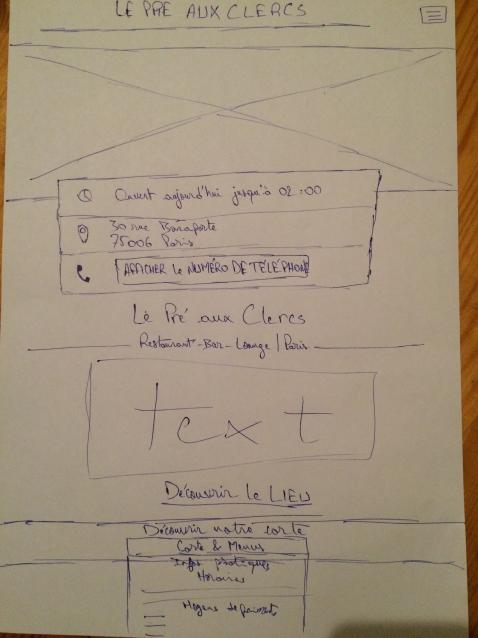 LE PRE AUX CLERCS
Ouvert aujourd'hui jusqu'à 02:00
30 rue Bonaparte
75006 Paris
AFFICHER LE NUMÉRO DE TÉLÉPHONE
Le Pré aux Clercs
Restaurant - Bar - Lounge | Paris
text
Découvrir le LIEU
Découvrir notre carte
Carte & Menus
Infos pratiques
Horaires
Moyens de paiements